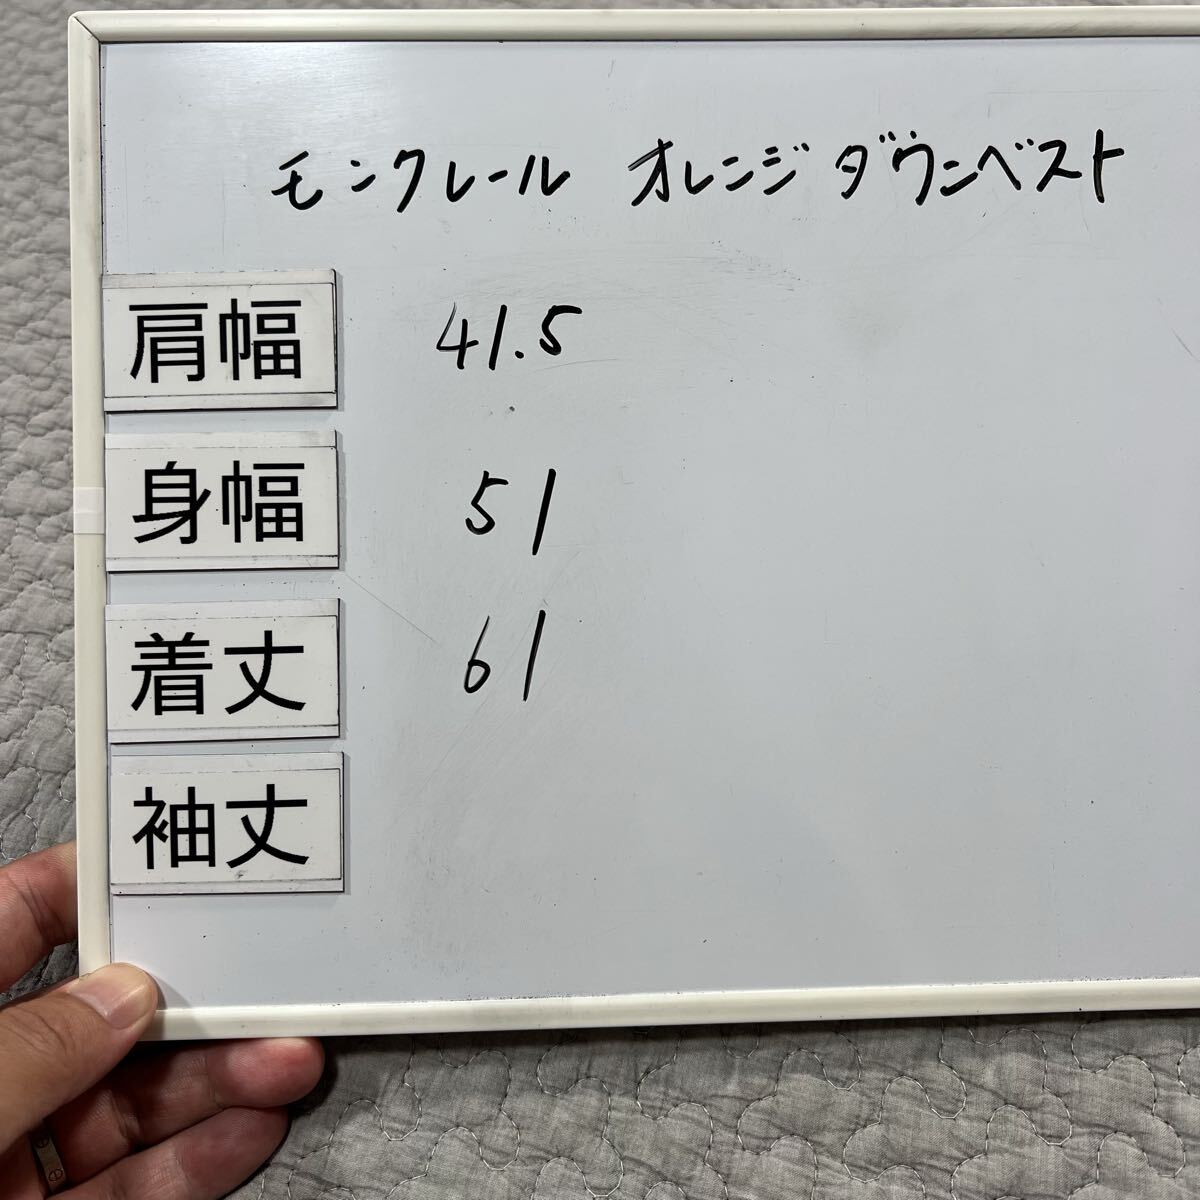 モンクレール オレンジ ダウンベスト
肩幅 41.5
身幅 51
着丈 61
袖丈